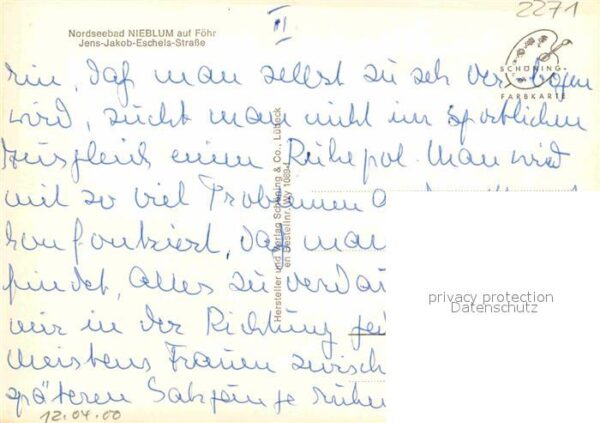 2271
II
Nordseebad NIEBLUM auf Föhr
Jens-Jakob-Eschels-Straße
SCHÖNING
FARBKARTE
rin, daß man selbst zu sehr verbogen
wird, sucht man nicht im sportlichen
Ausgleich einen Ruhepol. Man wird
mit so viel Problemen
konfrontiert, daß man
findet, Alles zu verdau
mir in der Richtung
meistens Frauen zwisch
späteren Satzgänge
12.04.00
Hersteller und Verlag Schöning & Co., Lübeck
privacy protection
Datenschutz